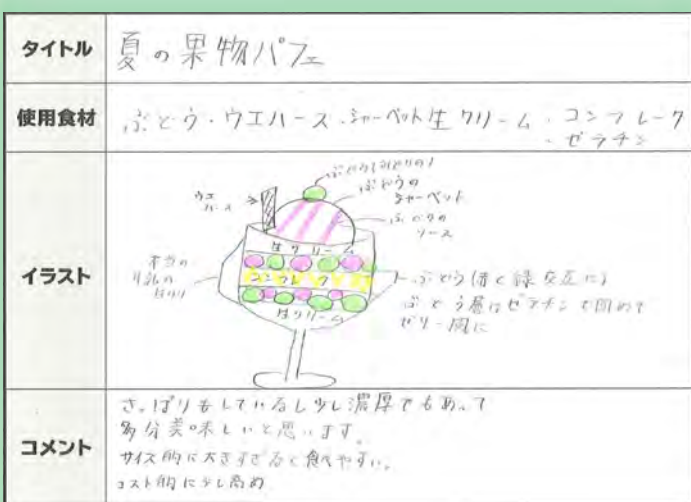 タイトル
夏の果物パフェ
使用食材
ぶどう・ウエハース・シャーベット生クリーム・コンフレーク
・ゼラチン
イラスト
ぶどう(みどりの)
ぶどうの
シャーベット
ぶどうの
ソース
ウエ
ハース
生クリーム
コーンフレーク
生クリーム
本当の
牛乳の
ぶどう
緑交互に)
ぶどう層はゼラチンで固めて
ゼリー風に
コメント
さっぱりもしているし少し濃厚でもあって
多分美味しいと思います。
サイズ的に大きすぎると食べやすい。
コスト的に少し高め